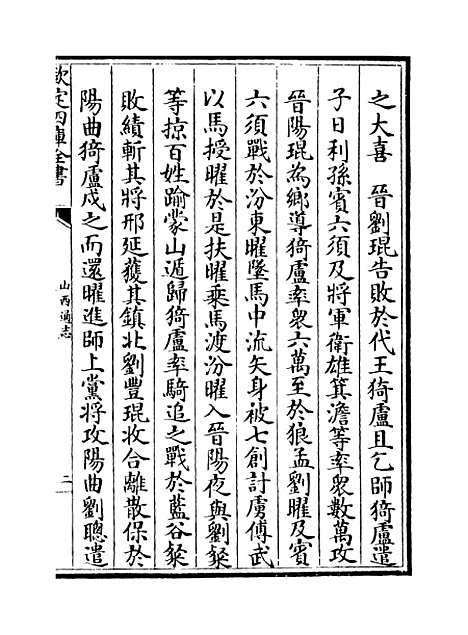 之大喜　晉劉琨告敗於代王猗盧且乞師猗盧遣
子日利孫賓六須及將軍衛雄箕澹等率衆數萬攻
晉陽琨為鄉導猗盧率衆六萬至於狼孟劉曜及賓
六須戰於汾東曜墜馬中流矢身被七創討虜傅武
以馬授曜於是扶曜乘馬渡汾曜入晉陽夜與劉粲
等掠百姓踰蒙山遁歸猗盧率騎追之戰於藍谷粲
敗績斬其將邢延獲其鎮北劉豐琨收合離散保於
陽曲猗盧戍之而還曜進師上黨將攻陽曲劉聰遣
欽定四庫全書
山西通志